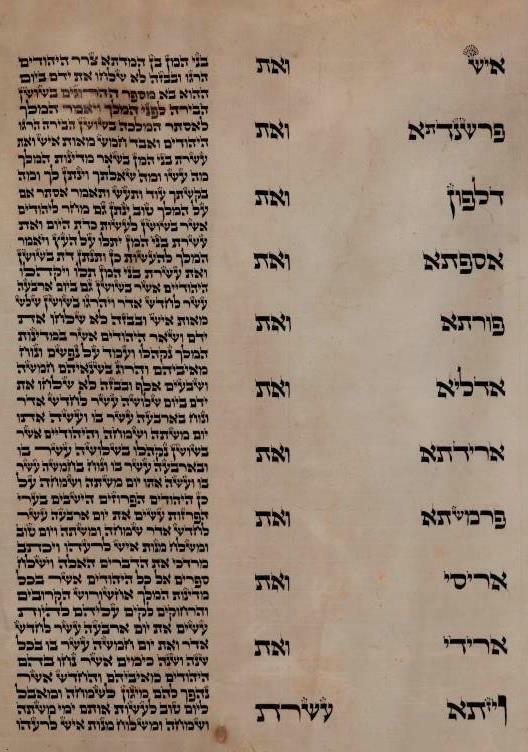 איש ואת
פרשנדתא ואת
דלפון ואת
אספתא ואת
פורתא ואת
אדליא ואת
ארידתא ואת
פרמשתא ואת
אריסי ואת
ארידי ואת
ויזתא עשרת
בני המן בן המדתא צרר היהודים
הרגו ובבזה לא שלחו את ידם ביום
ההוא בא מספר ההרוגים בשושן
הבירה לפני המלך ויאמר המלך
לאסתר המלכה בשושן הבירה הרגו
היהודים ואבד חמש מאות איש ואת
עשרת בני המן בשאר מדינות המלך
מה עשו ומה שאלתך וינתן לך ומה
בקשתך עוד ותעש ותאמר אסתר אם
על המלך טוב ינתן גם מחר ליהודים
אשר בשושן לעשות כדת היום ואת
עשרת בני המן יתלו על העץ ויאמר
המלך להעשות כן ותנתן דת בשושן
ואת עשרת בני המן תלו ויקהלו
היהודיים אשר בשושן גם ביום ארבעה
עשר לחדש אדר ויהרגו בשושן שלש
מאות איש ובבזה לא שלחו את
ידם ושאר היהודים אשר במדינות
המלך נקהלו ועמד על נפשם ונוח
מאיביהם והרג בשנאיהם חמשה
ושבעים אלף ובבזה לא שלחו את
ידם ביום שלושה עשר לחדש אדר
ונוח בארבעה עשר בו ועשה אתו
יום משתה ושמחה והיהודיים אשר
בשושן נקהלו בשלושה עשר בו
ובארבעה עשר בו ונוח בחמשה עשר
בו ועשה אתו יום משתה ושמחה על
כן היהודים הפרוזים הישבים בערי
הפרזות עשים את יום ארבעה עשר
לחדש אדר שמחה ומשתה ויום טוב
ומשלח מנות איש לרעהו ויכתב
מרדכי את הדברים האלה וישלח
ספרים אל כל היהודים אשר בכל
מדינות המלך אחשורוש הקרובים
והרחוקים לקים עליהם להיות
עשים את יום ארבעה עשר לחדש
אדר ואת יום חמשה עשר בו בכל
שנה ושנה כימים אשר נחו בהם
היהודים מאיביהם והחדש אשר
נהפך להם מיגון לשמחה ומאבל
ליום טוב לעשות אותם ימי משתה
ושמחה ומשלוח מנות איש לרעהו